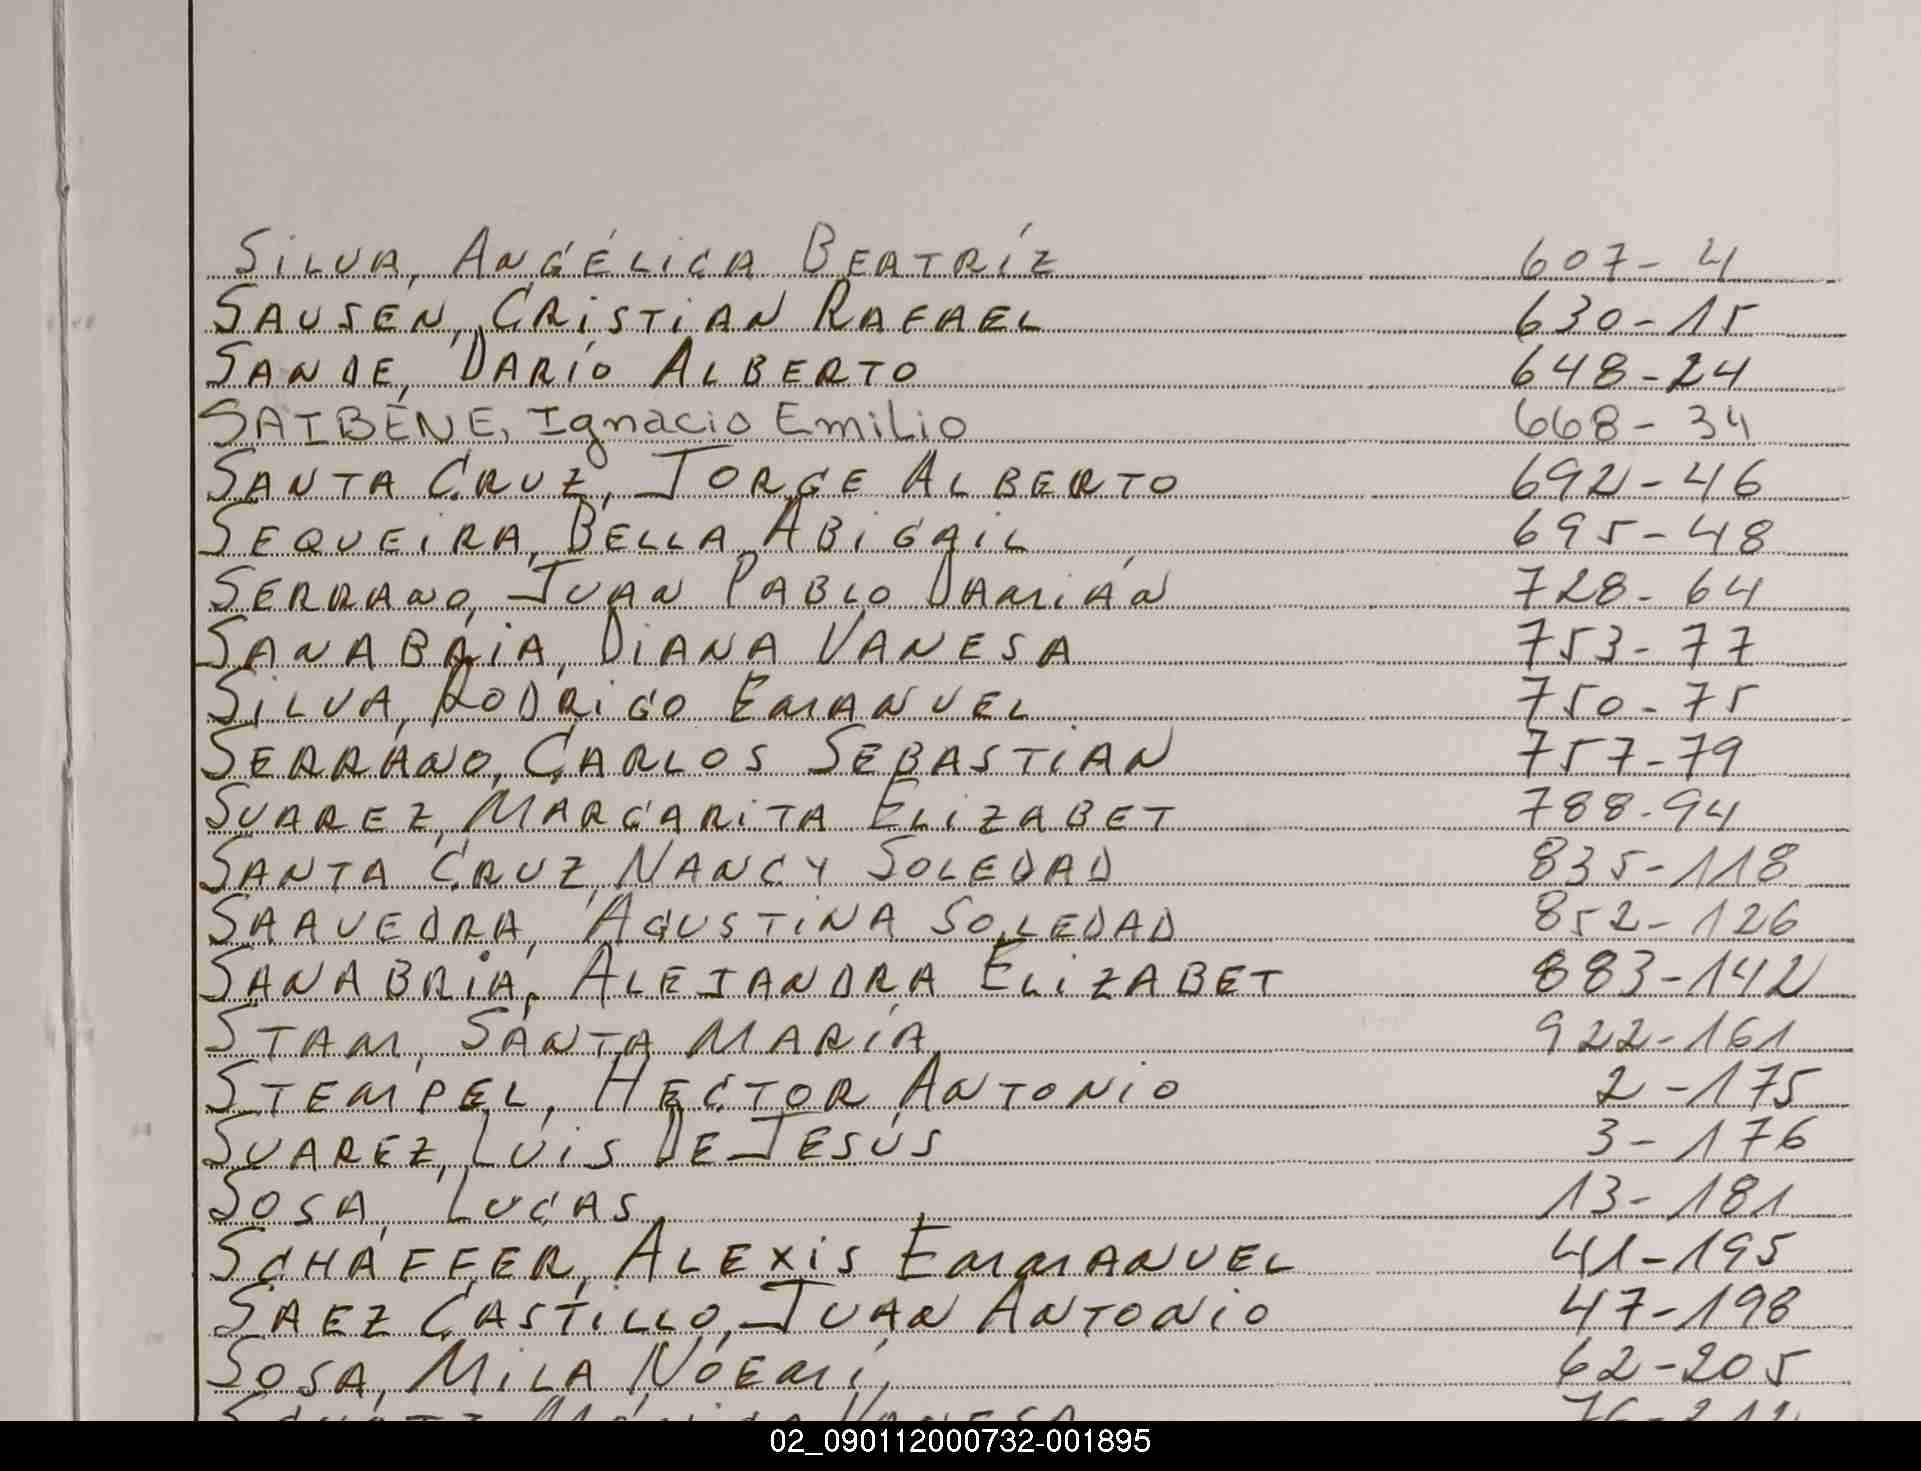 Silva, Angélica Beatríz 607-4
Sausen, Cristian Rafael 630-15
Sande, Darío Alberto 648-24
SAIBENE, Ignacio Emilio 668-34
Santa Cruz, Jorge Alberto 692-46
Sequeira, Bella Abigail 695-48
Serrano, Juan Pablo Damián 728-64
Sanabria, Diana Vanesa 753-77
Silva, Rodrigo Emanuel 750-75
Serrano, Carlos Sebastian 757-79
Suarez, Margarita Elizabet 788-94
Santa Cruz, Nancy Soledad 835-118
Saavedra, Agustina Soledad 852-126
Sanabria, Alejandra Elizabet 883-142
Stam, Santa María 922-161
Stempel, Hector Antonio 2-175
Suarez, Luis De Jesús 3-176
Sosa, Lucas 13-181
Schaffer, Alexis Emmanuel 41-195
Saez Castillo, Juan Antonio 47-198
Sosa, Mila Noemí 62-205
Vanesa
02_090112000732-001895